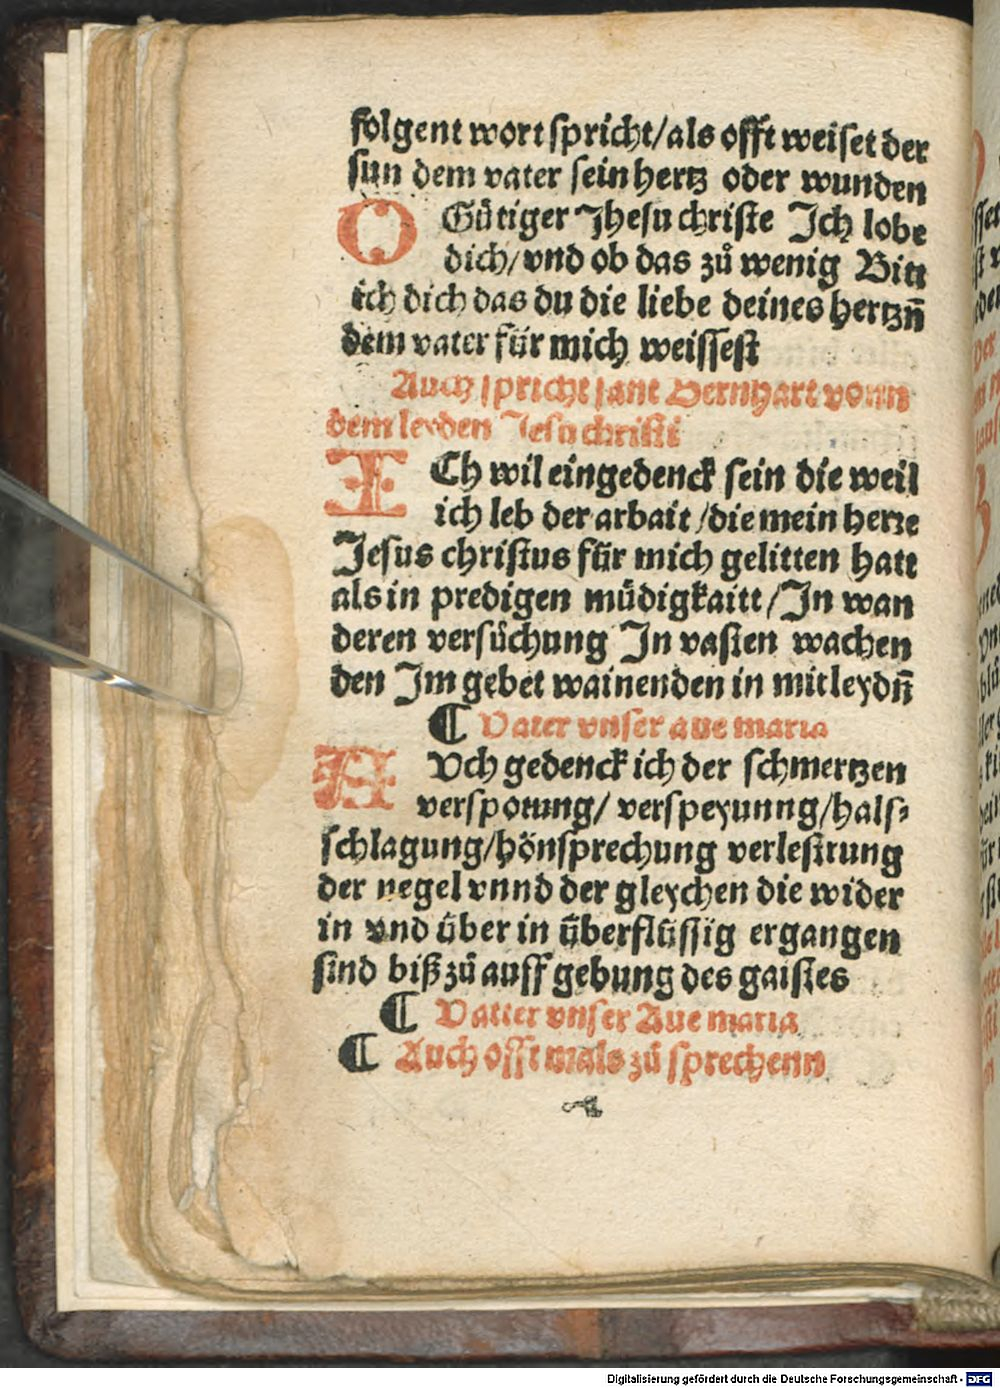 folgent wort spricht/als offt weiset der
sun dem vater sein hertz oder wunden
O Gůtiger Jhesu christe Ich lobe
dich/vnd ob das zů wenig Bitt
ich dich das du die liebe deines hertzn̄
dem vater für mich weissest
Auch spricht sant Bernhart vonn
dem leyden Jesu christi
ICh wil eingedenck sein die weil
ich leb der arbait/die mein herre
Jesus christus für mich gelitten hatt
als in predigen můdigkaitt/In wan
deren versůchung In vasten wachen
den Im gebet wainenden in mitleydn̄
¶ Vater vnser aue maria
AVch gedenck ich der schmertzen
verspotung/ verspeyunng/hals⸗
schlagung/hönsprechung verlestrung
der negel vnnd der gleychen die wider
in vnd über in überflüssig ergangen
sind biß zů auff gebung des gaistes
¶ Vatter vnser Aue maria
¶ Auch offt mals zů sprechenn
Digitalisierung gefördert durch die Deutsche Forschungsgemeinschaft - DFG